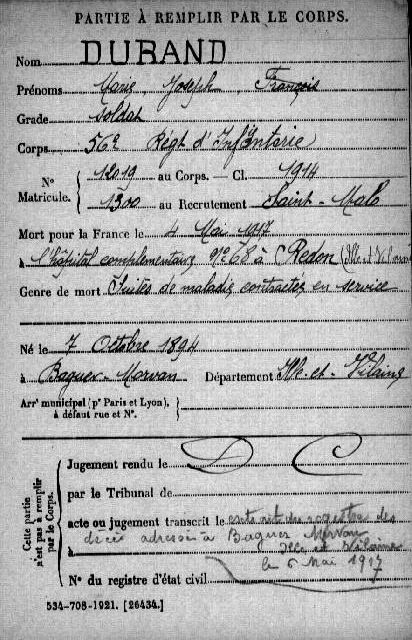 PARTIE À REMPLIR PAR LE CORPS.
Nom DURAND
Prénoms Marie, Joseph, François
Grade Soldat
Corps 56e Régt d'Infanterie
N° Matricule. { 12019 au Corps. — Cl. 1914
1300 au Recrutement Saint-Malo
Mort pour la France le 4 Mai 1917
à l'hôpital complementaire N° 68 à Redon (Ille et Vilaine)
Genre de mort Suites de maladie contractée en service
Né le 7 Octobre 1894
à Baguer-Morvan Département Ille-et-Vilaine
Arrt municipal (pr Paris et Lyon), à défaut rue et N°. }
Cette partie n'est pas à remplir par le Corps.
D C
Jugement rendu le
par le Tribunal de
acte ou jugement transcrit le registres des
décès adressé à Baguer Morvan
à Ille et Vilaine
le 6 Mai 1917
N° du registre d'état civil
534-708-1921. [26434.]